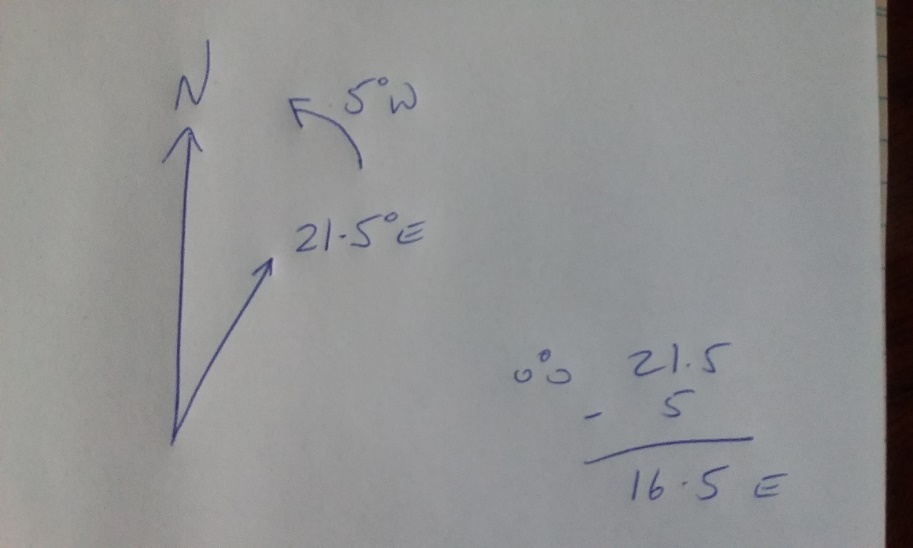 N
5°W
21.5°E
∴ 21.5
- 5
16.5 E